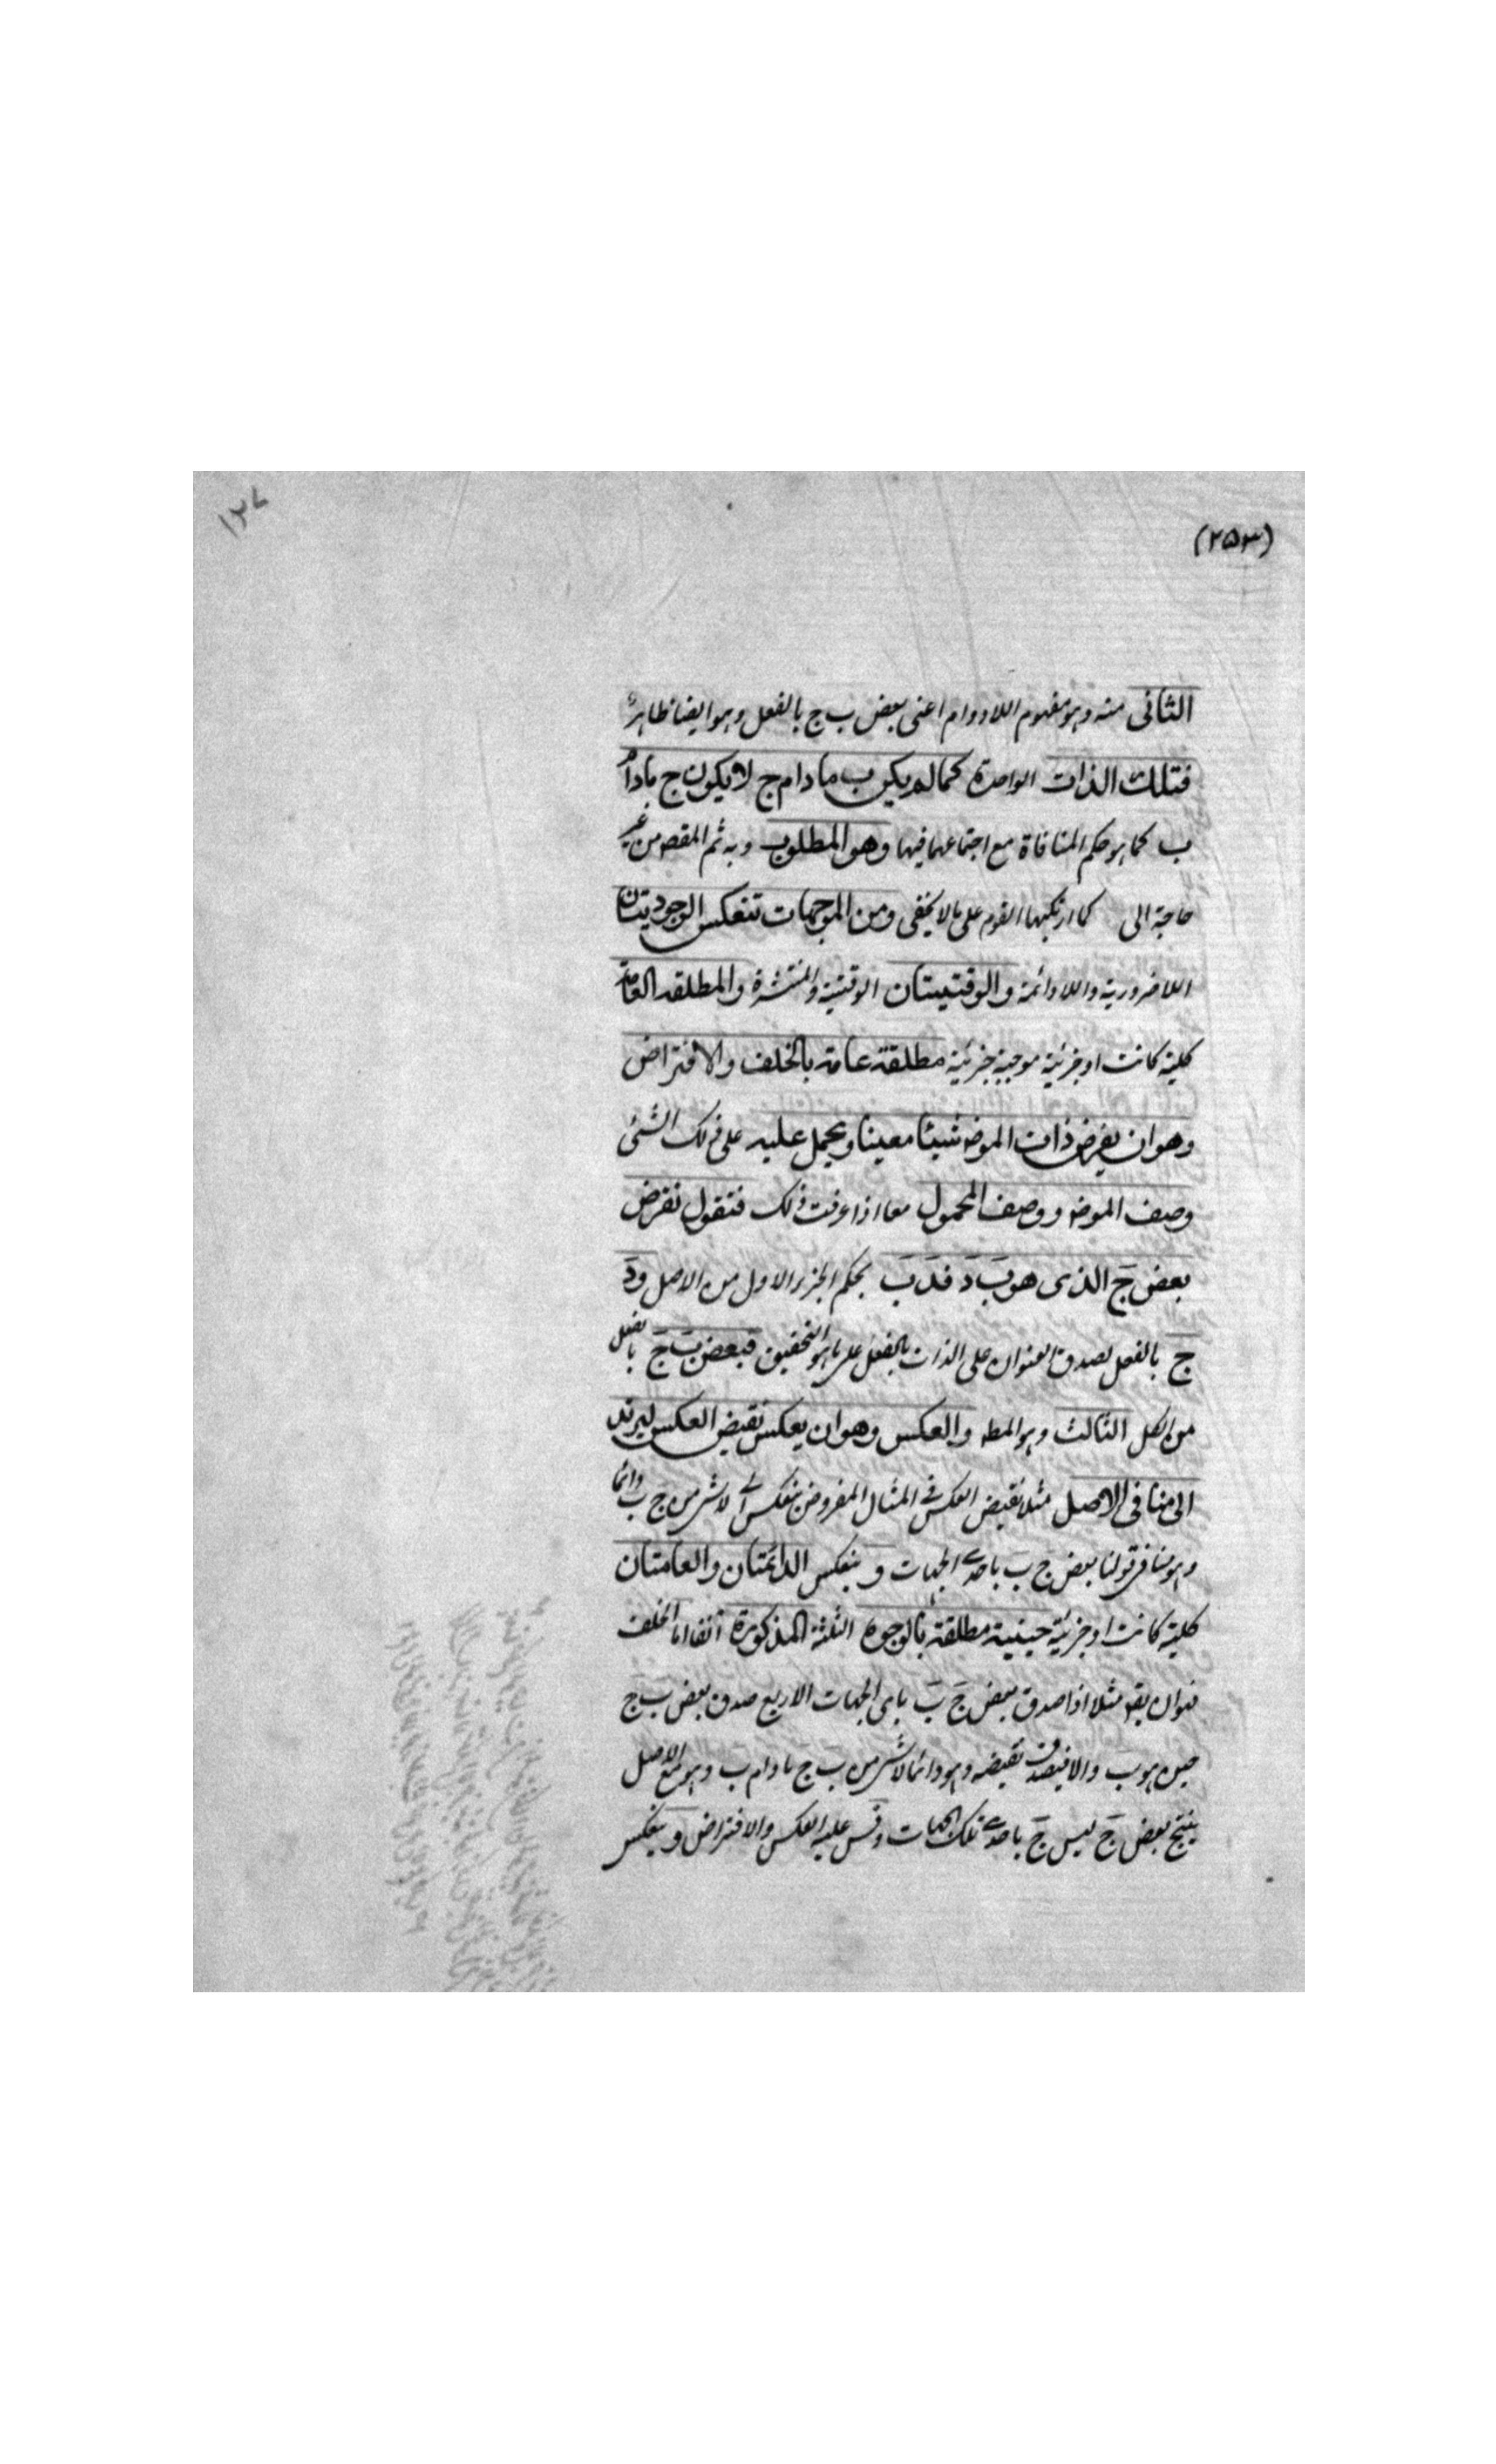 (٢٥٣)
١٢٧
الثانى منه وهو مفهوم اللادوام اعنى بعض ب ج بالفعل وهو ايضا ظاهر
فتلك الذات الواحدة كما لم يكن ب ما دام ج لا يكون ج مادام
ب كما هو حكم المنافاة مع اجتماعهما فيها وهو المطلوب وبه ثم المقصد من غير
حاجة الى كما ارتكبها القوم على ما لا يخفى ومن الموجهات تنعكس الوجوديتان
اللاضرورية واللادائمة والوقتيتان الوقتية والمنتشرة والمطلقة العامة
كلية كانت او جزئية موجبة جزئية مطلقة عامة بالخلف والافتراض
وهو ان يفرض ذات الموضـ شيئا معينا ويحمل عليه على ذلك الشئ
وصف الموضـ ووصف المحمول معا اذا عرفت ذلك فنقول نفرض
بعض ج الذى هو ب د فد ب بحكم الجزء الاول من الاصل ود
ج بالفعل لصدق العنوان على الذات بالفعل على ما هو التحقيق فبعض ب ج بالفعل
من الشكل الثالث وهو المطـ والعكس وهو ان يعكس نقيض العكس ليرتد
الى منافى الاصل مثلا نقيض العكس فى المثال المفروض ينعكس الى لا شئ من ج ب دائما
وهو منافى قولنا بعض ج ب باحدى الجهات وينعكس الدائمتان والعامتان
كلية كانت او جزئية حينية مطلقة بالوجوه الثلثة المذكورة آنفا اما الخلف
فهو ان يقـ مثلا اذا صدق بعض ج ب باى الجهات الاربع صدق بعض ب ج
حين هو ب والا فيصدق نقيضه وهو دائما لا شئ من ب ج مادام ب وهو مع الاصل
ينتج بعض ج ليس ج باحدى تلك الجهات وقس عليه العكس والافتراض وينعكس